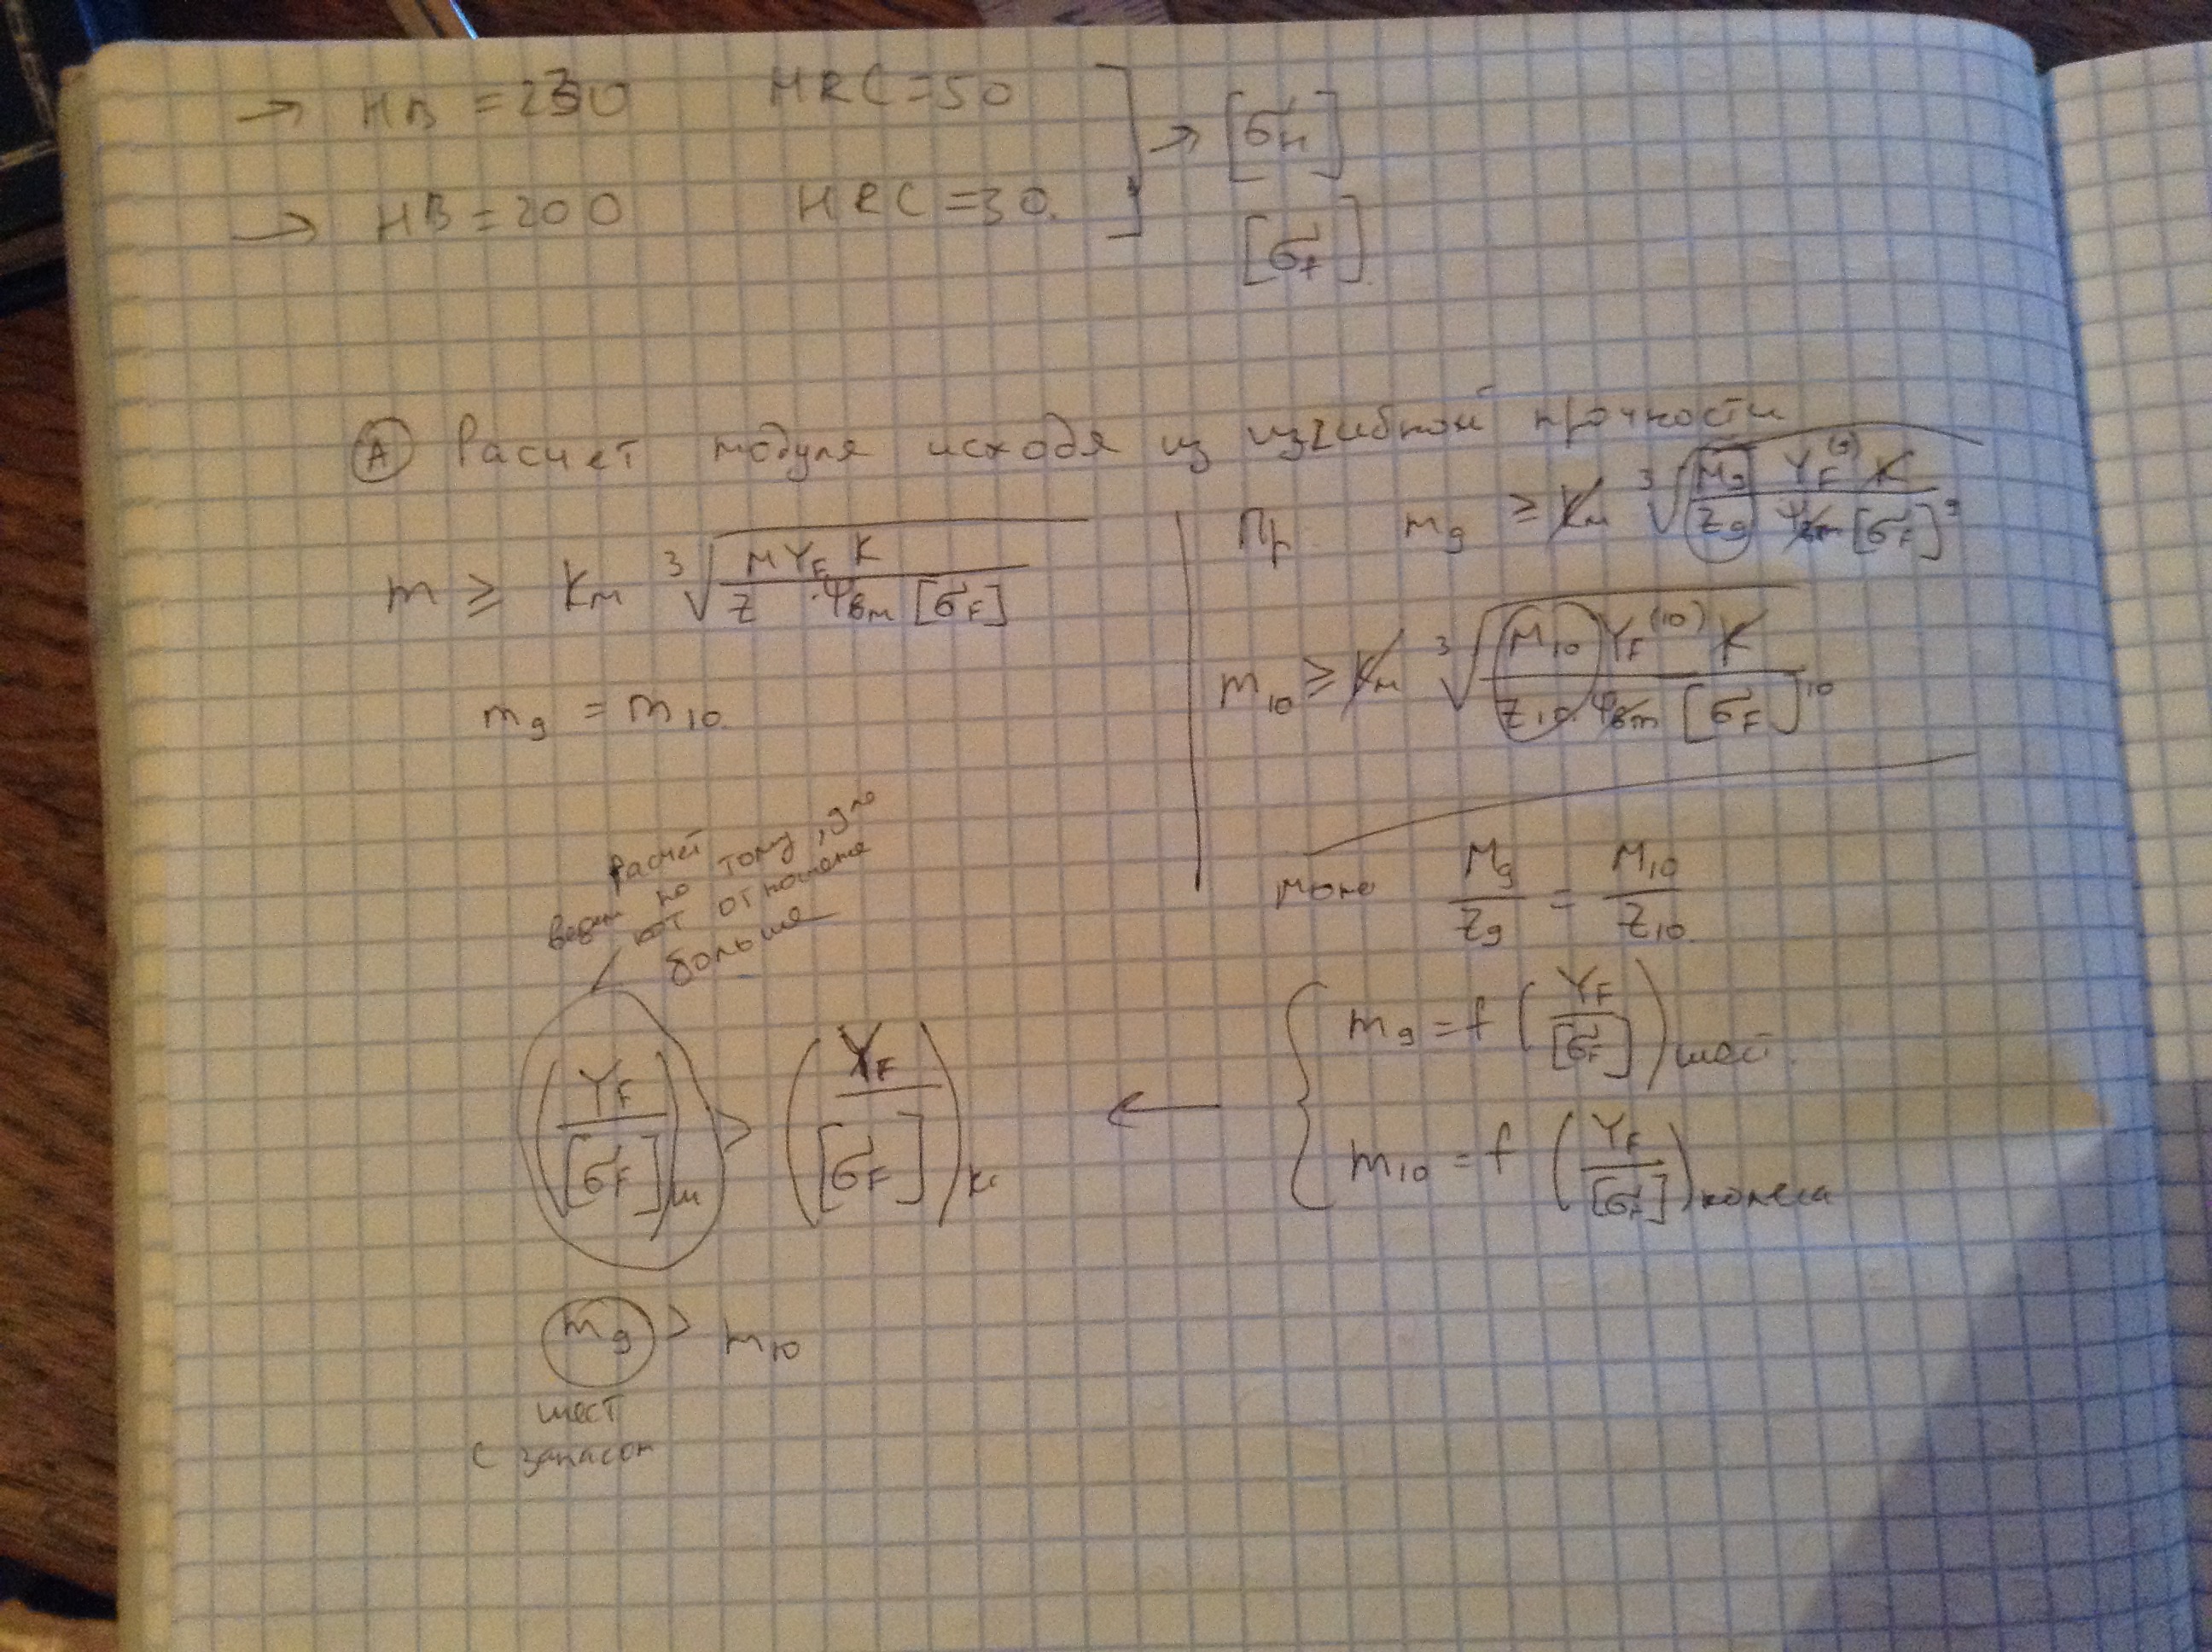 → HB = 230 HRC = 50 ] → [σн]
→ HB = 200 HRC = 30. [σF]
(А) Расчет модуля исходя из изгибной прочности
m ≥ Kм ∛(M YF K / Z · Ψвм [σF])
m9 = m10
Пр. m9 ≥ Kм ∛(M9 YF(9) K / Z9 Ψвm [σF]9)
m10 ≥ Kм ∛(M10 YF(10) K / Z10 · Ψвm [σF]10)
M9 / Z9 = M10 / Z10.
m9 = f (YF / [σF]) шест.
m10 = f (YF / [σF]) колеса
←
расчет
ведем по тому, для
кот отношение
больше
(YF / [σF])ш > (YF / [σF])к
m9 > m10
шест
с запасом